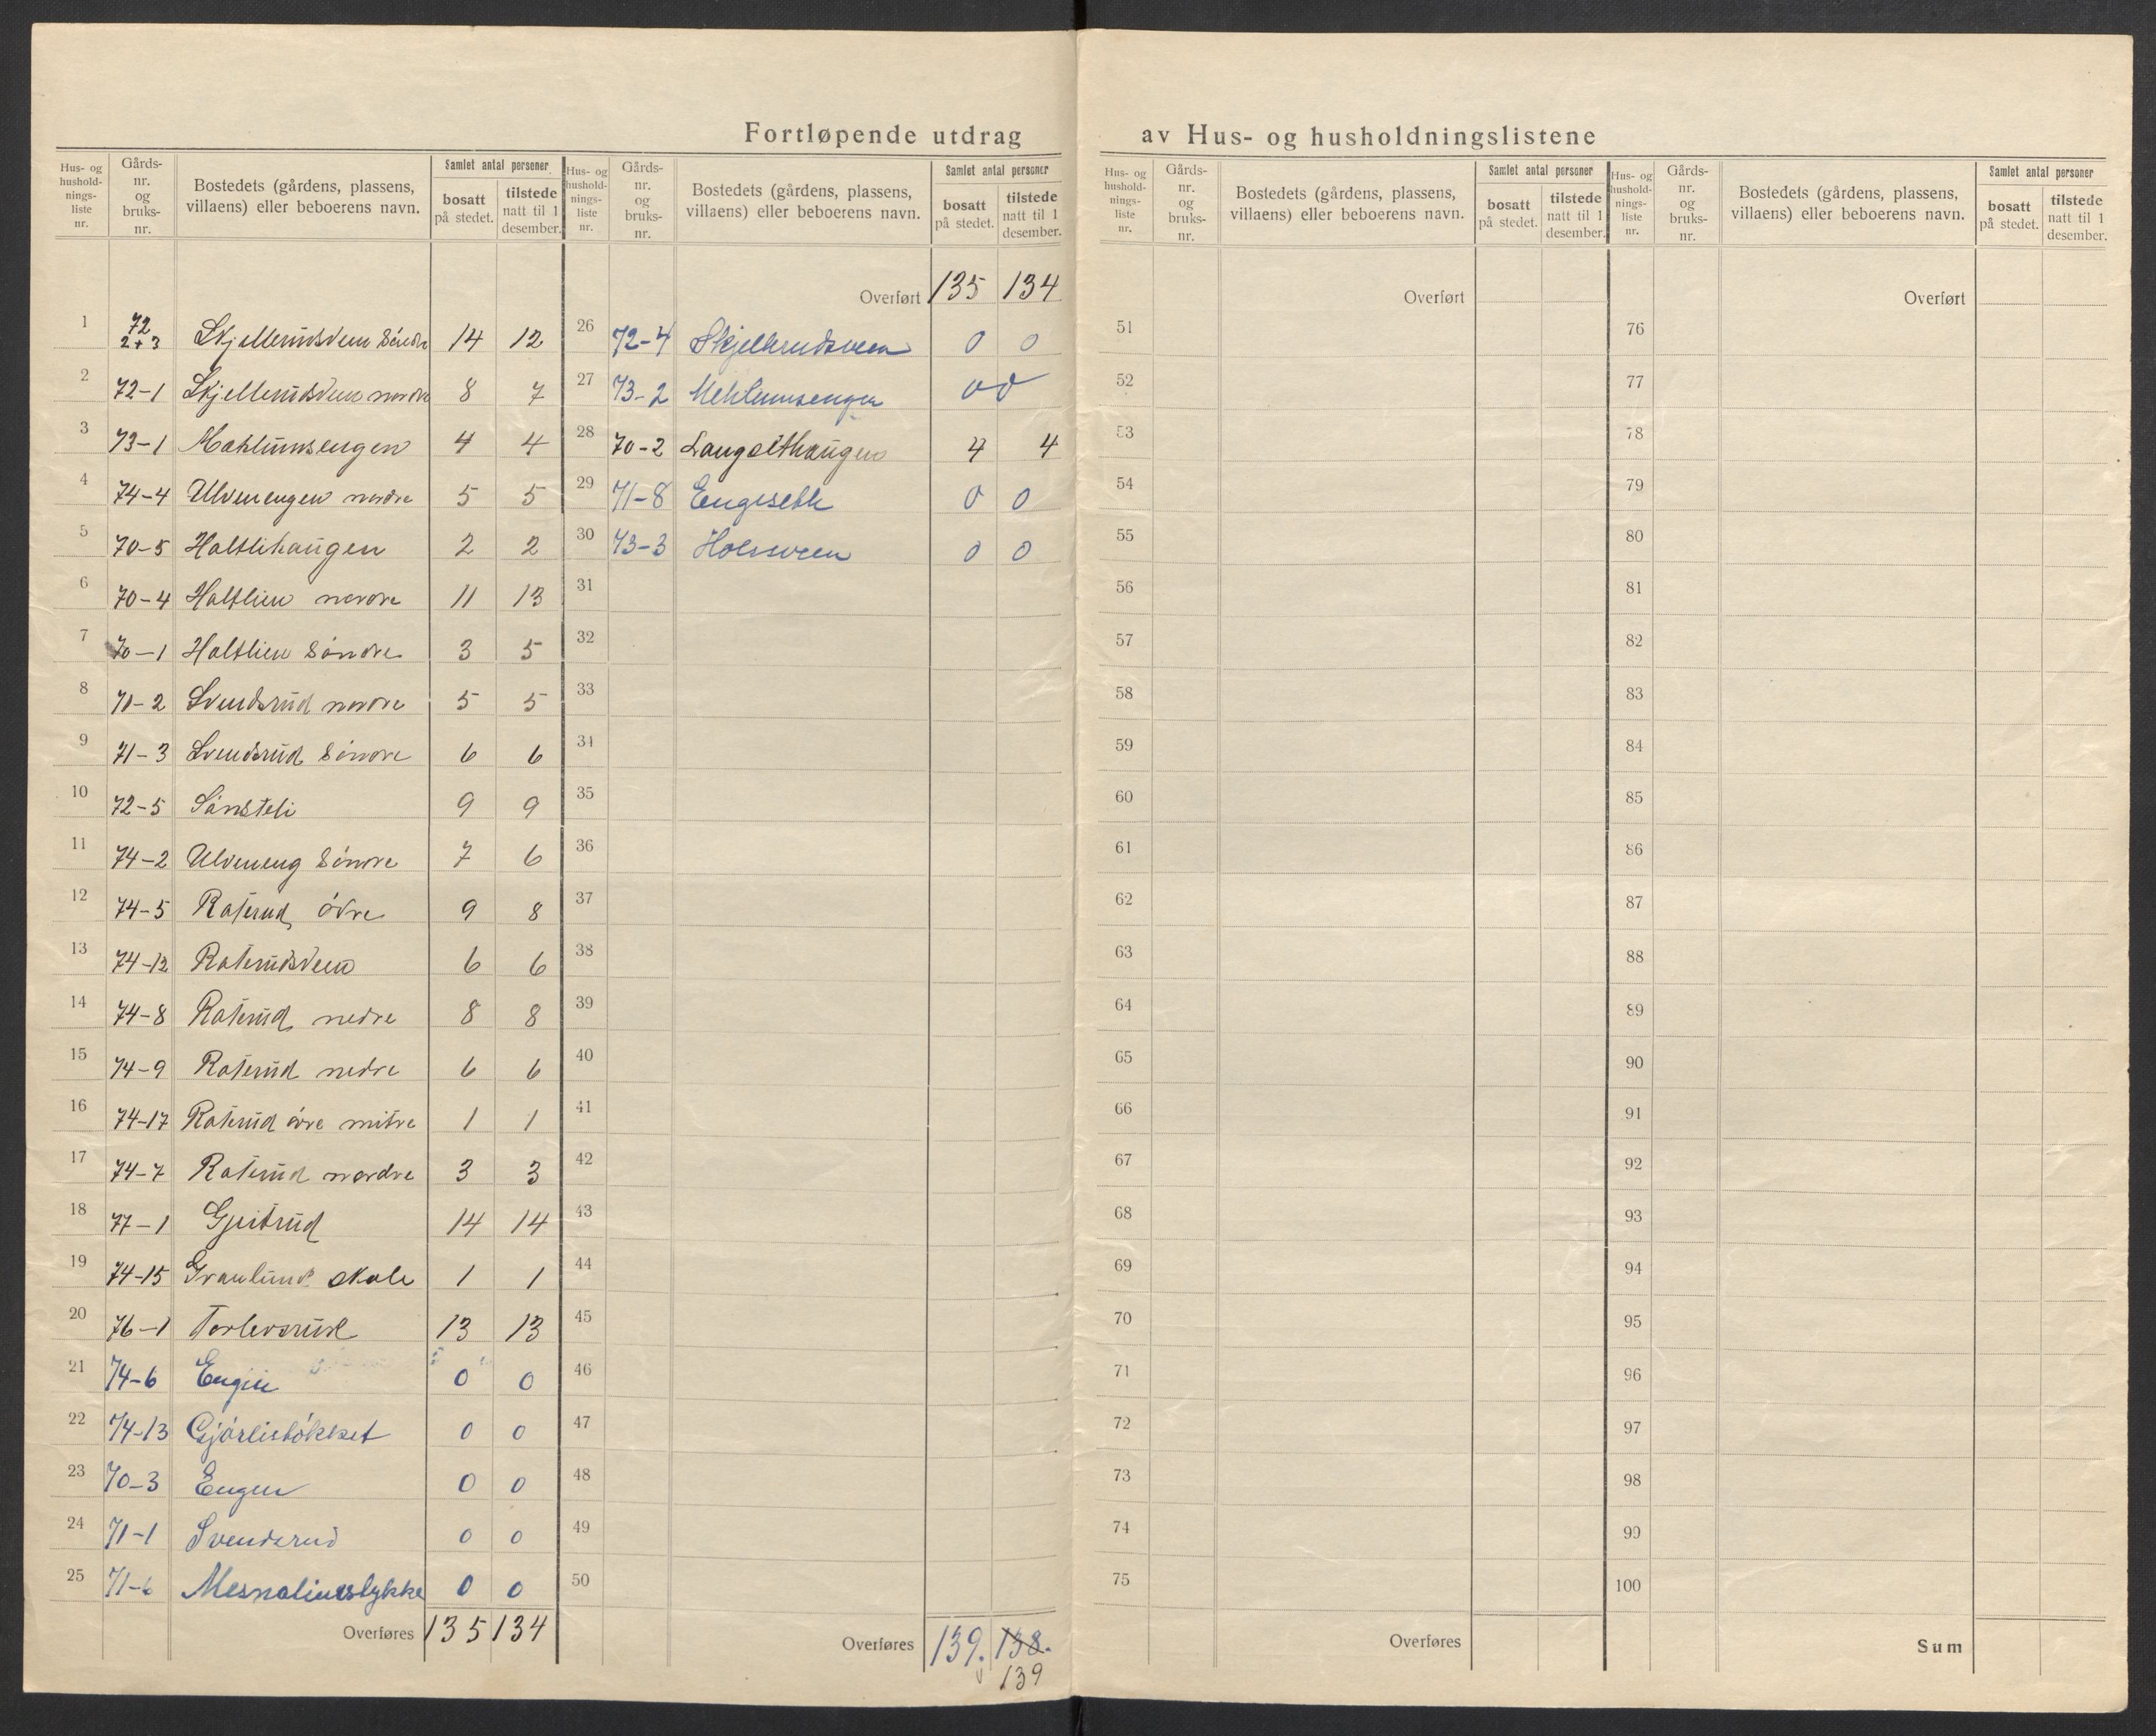 Fortløpende utdrag av Hus- og husholdningslistene
Hus- og husholdningsliste nr. | Gårds-nr. og bruks-nr. | Bostedets (gårdens, plassens, villaens) eller beboerens navn. | Samlet antal personer | bosatt på stedet. | tilstede natt til 1 desember.
1 72 2+3 Skjellerudsveen Söndre 14 12
2 72-1 Skjellerudsveen nordre 8 7
3 73-1 Mæhlumsengen 4 4
4 74-4 Ulvenengen nordre 5 5
5 70-5 Holtlihaugen 2 2
6 70-4 Holtlien nordre 11 13
7 70-1 Holtlien Söndre 3 5
8 71-2 Svendsrud nordre 5 5
9 71-3 Svendsrud Söndre 6 6
10 72-5 Sönsteli 9 9
11 74-2 Ulveneng Söndre 7 6
12 74-5 Roterud övre 9 8
13 74-12 Roterudsveen 6 6
14 74-8 Roterud nedre 8 8
15 74-9 Roterud nedre 6 6
16 74-17 Roterud övre mitre 1 1
17 74-7 Roterud nordre 3 3
18 77-1 Gjeitrud 14 14
19 74-15 Granlund skole 1 1
20 76-1 Torleversrud 13 13
21 74-6 Engen 0 0
22 74-13 Gjörlistökket 0 0
23 70-3 Engen 0 0
24 71-1 Svendsrud 0 0
25 71-6 Mesnalienslykke 0 0
Overføres 135 134
Hus- og husholdningsliste nr. | Gårds-nr. og bruks-nr. | Bostedets (gårdens, plassens, villaens) eller beboerens navn. | Samlet antal personer | bosatt på stedet. | tilstede natt til 1 desember.
Overført 135 134
26 72-4 Skjellerudsveen 0 0
27 73-2 Mehlumsengen 0 0
28 70-2 Langsethaugen 4 4
29 71-8 Engeseth 0 0
30 73-3 Holssveen 0 0
31
32
33
34
35
36
37
38
39
40
41
42
43
44
45
46
47
48
49
50
Overføres 139. 138.
139
Hus- og husholdningsliste nr. | Gårds-nr. og bruks-nr. | Bostedets (gårdens, plassens, villaens) eller beboerens navn. | Samlet antal personer | bosatt på stedet. | tilstede natt til 1 desember.
Overført
51
52
53
54
55
56
57
58
59
60
61
62
63
64
65
66
67
68
69
70
71
72
73
74
75
Overføres
Hus- og husholdningsliste nr. | Gårds-nr. og bruks-nr. | Bostedets (gårdens, plassens, villaens) eller beboerens navn. | Samlet antal personer | bosatt på stedet. | tilstede natt til 1 desember.
Overført
76
77
78
79
80
81
82
83
84
85
86
87
88
89
90
91
92
93
94
95
96
97
98
99
100
Sum